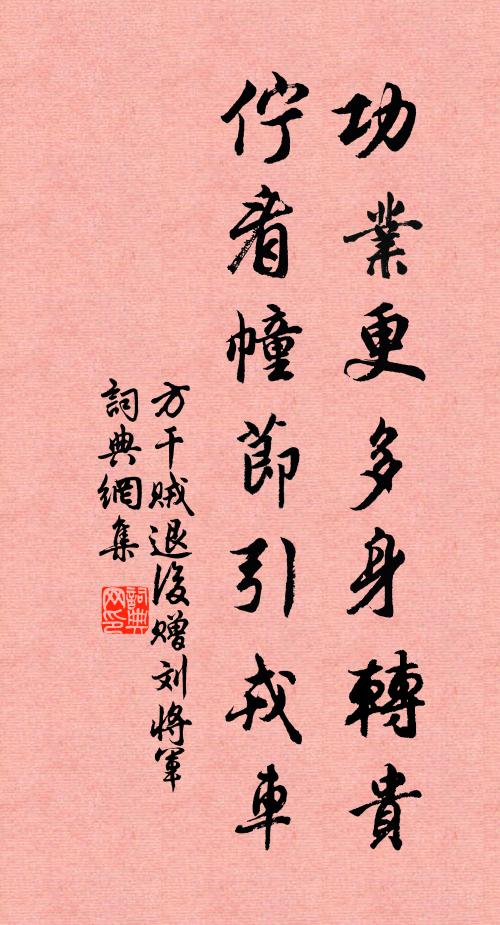 功業更多身轉貴
佇看幢節引戎車
方干賊退後贈刘将軍
詞典網集
詞典网印